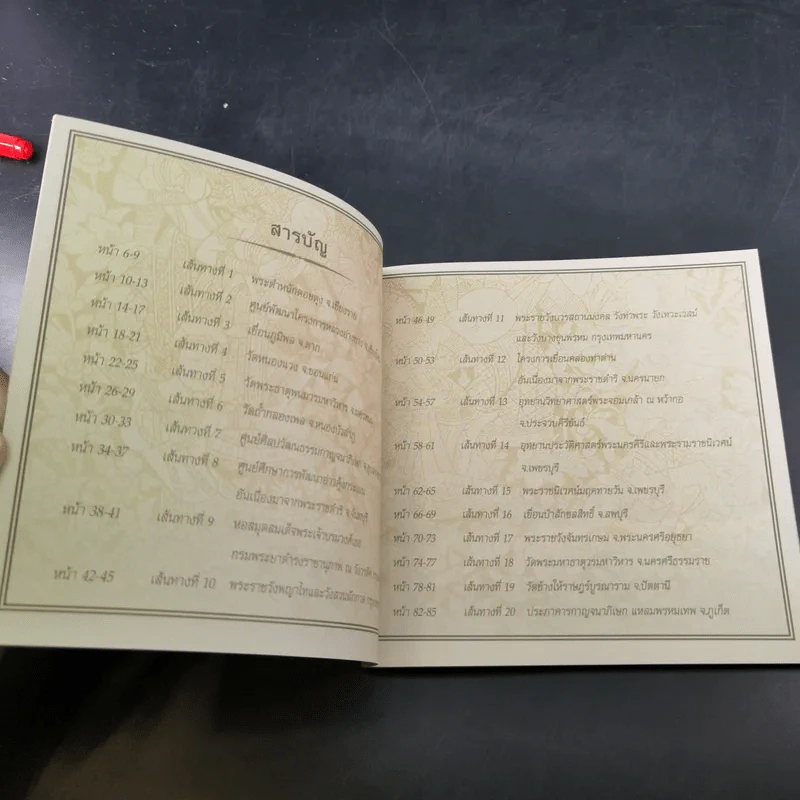 สารบัญ
หน้า 6-9 เส้นทางที่ 1 พระตำหนักดอยตุง จ.เชียงราย
หน้า 10-13 เส้นทางที่ 2 ศูนย์พัฒนาโครงการหลวงอ่างขาง
หน้า 14-17 เส้นทางที่ 3 เขื่อนภูมิพล จ.ตาก
หน้า 18-21 เส้นทางที่ 4 วัดหนองแวง จ.ขอนแก่น
หน้า 22-25 เส้นทางที่ 5 วัดพระธาตุพนมวรมหาวิหาร จ.นครพนม
หน้า 26-29 เส้นทางที่ 6 วัดถ้ำกลองเพล จ.หนองบัวลำภู
หน้า 30-33 เส้นทางที่ 7 ศูนย์ศิลปวัฒนธรรมกาญจนาภิเษก
หน้า 34-37 เส้นทางที่ 8 ศูนย์ศึกษาการพัฒนาอ่าวคุ้งกระเบน
อันเนื่องมาจากพระราชดำริ จ.จันทบุรี
หน้า 38-41 เส้นทางที่ 9 หอสมุดสมเด็จพระเจ้าบรมวงศ์เธอ
กรมพระยาดำรงราชานุภาพ ณ
หน้า 42-45 เส้นทางที่ 10 พระราชวังพญาไทและวังสวนผักกาด
หน้า 46-49 เส้นทางที่ 11 พระราชวังบวรสถานมงคล วังท่าพระ วังเทวะเวสม์
และวังบางขุนพรหม กรุงเทพมหานคร
หน้า 50-53 เส้นทางที่ 12 โครงการเขื่อนคลองท่าด่าน
อันเนื่องมาจากพระราชดำริ จ.นครนายก
หน้า 54-57 เส้นทางที่ 13 อุทยานวิทยาศาสตร์พระจอมเกล้า ณ หว้ากอ
จ.ประจวบคีรีขันธ์
หน้า 58-61 เส้นทางที่ 14 อุทยานประวัติศาสตร์พระนครคีรีและพระรามราชนิเวศน์
จ.เพชรบุรี
หน้า 62-65 เส้นทางที่ 15 พระราชนิเวศน์มฤคทายวัน จ.เพชรบุรี
หน้า 66-69 เส้นทางที่ 16 เขื่อนป่าสักชลสิทธิ์ จ.ลพบุรี
หน้า 70-73 เส้นทางที่ 17 พระราชวังจันทรเกษม จ.พระนครศรีอยุธยา
หน้า 74-77 เส้นทางที่ 18 วัดพระมหาธาตุวรมหาวิหาร จ.นครศรีธรรมราช
หน้า 78-81 เส้นทางที่ 19 วัดช้างให้ราษฎร์บูรณาราม จ.ปัตตานี
หน้า 82-85 เส้นทางที่ 20 ประภาคารกาญจนาภิเษก แหลมพรหมเทพ จ.ภูเก็ต